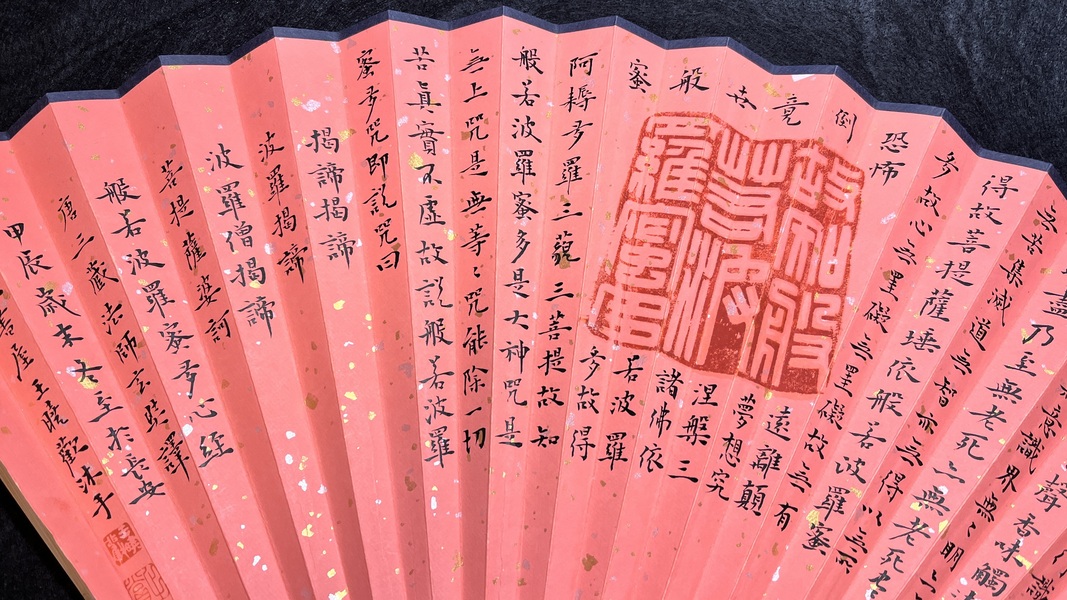 聲香味觸
意識界無〻明亦
盡乃至無老死亦無老死盡
無苦集滅道無智亦無得以無所
得故菩提薩埵依般若波羅蜜
多故心無罣礙無罣礙故無有
恐怖遠離顛
倒夢想究
竟涅槃三
世諸佛依
般若波羅
蜜多故得
阿耨多羅三藐三菩提故知
般若波羅蜜多是大神咒是
無上咒是無等〻咒能除一切
苦真實不虛故說般若波羅
蜜多咒即說咒曰
揭諦揭諦
波羅揭諦
波羅僧揭諦
菩提薩婆訶
般若波羅蜜多心經
唐三藏法師玄奘譯
甲辰歲末大至於長安
王曉歡沐手